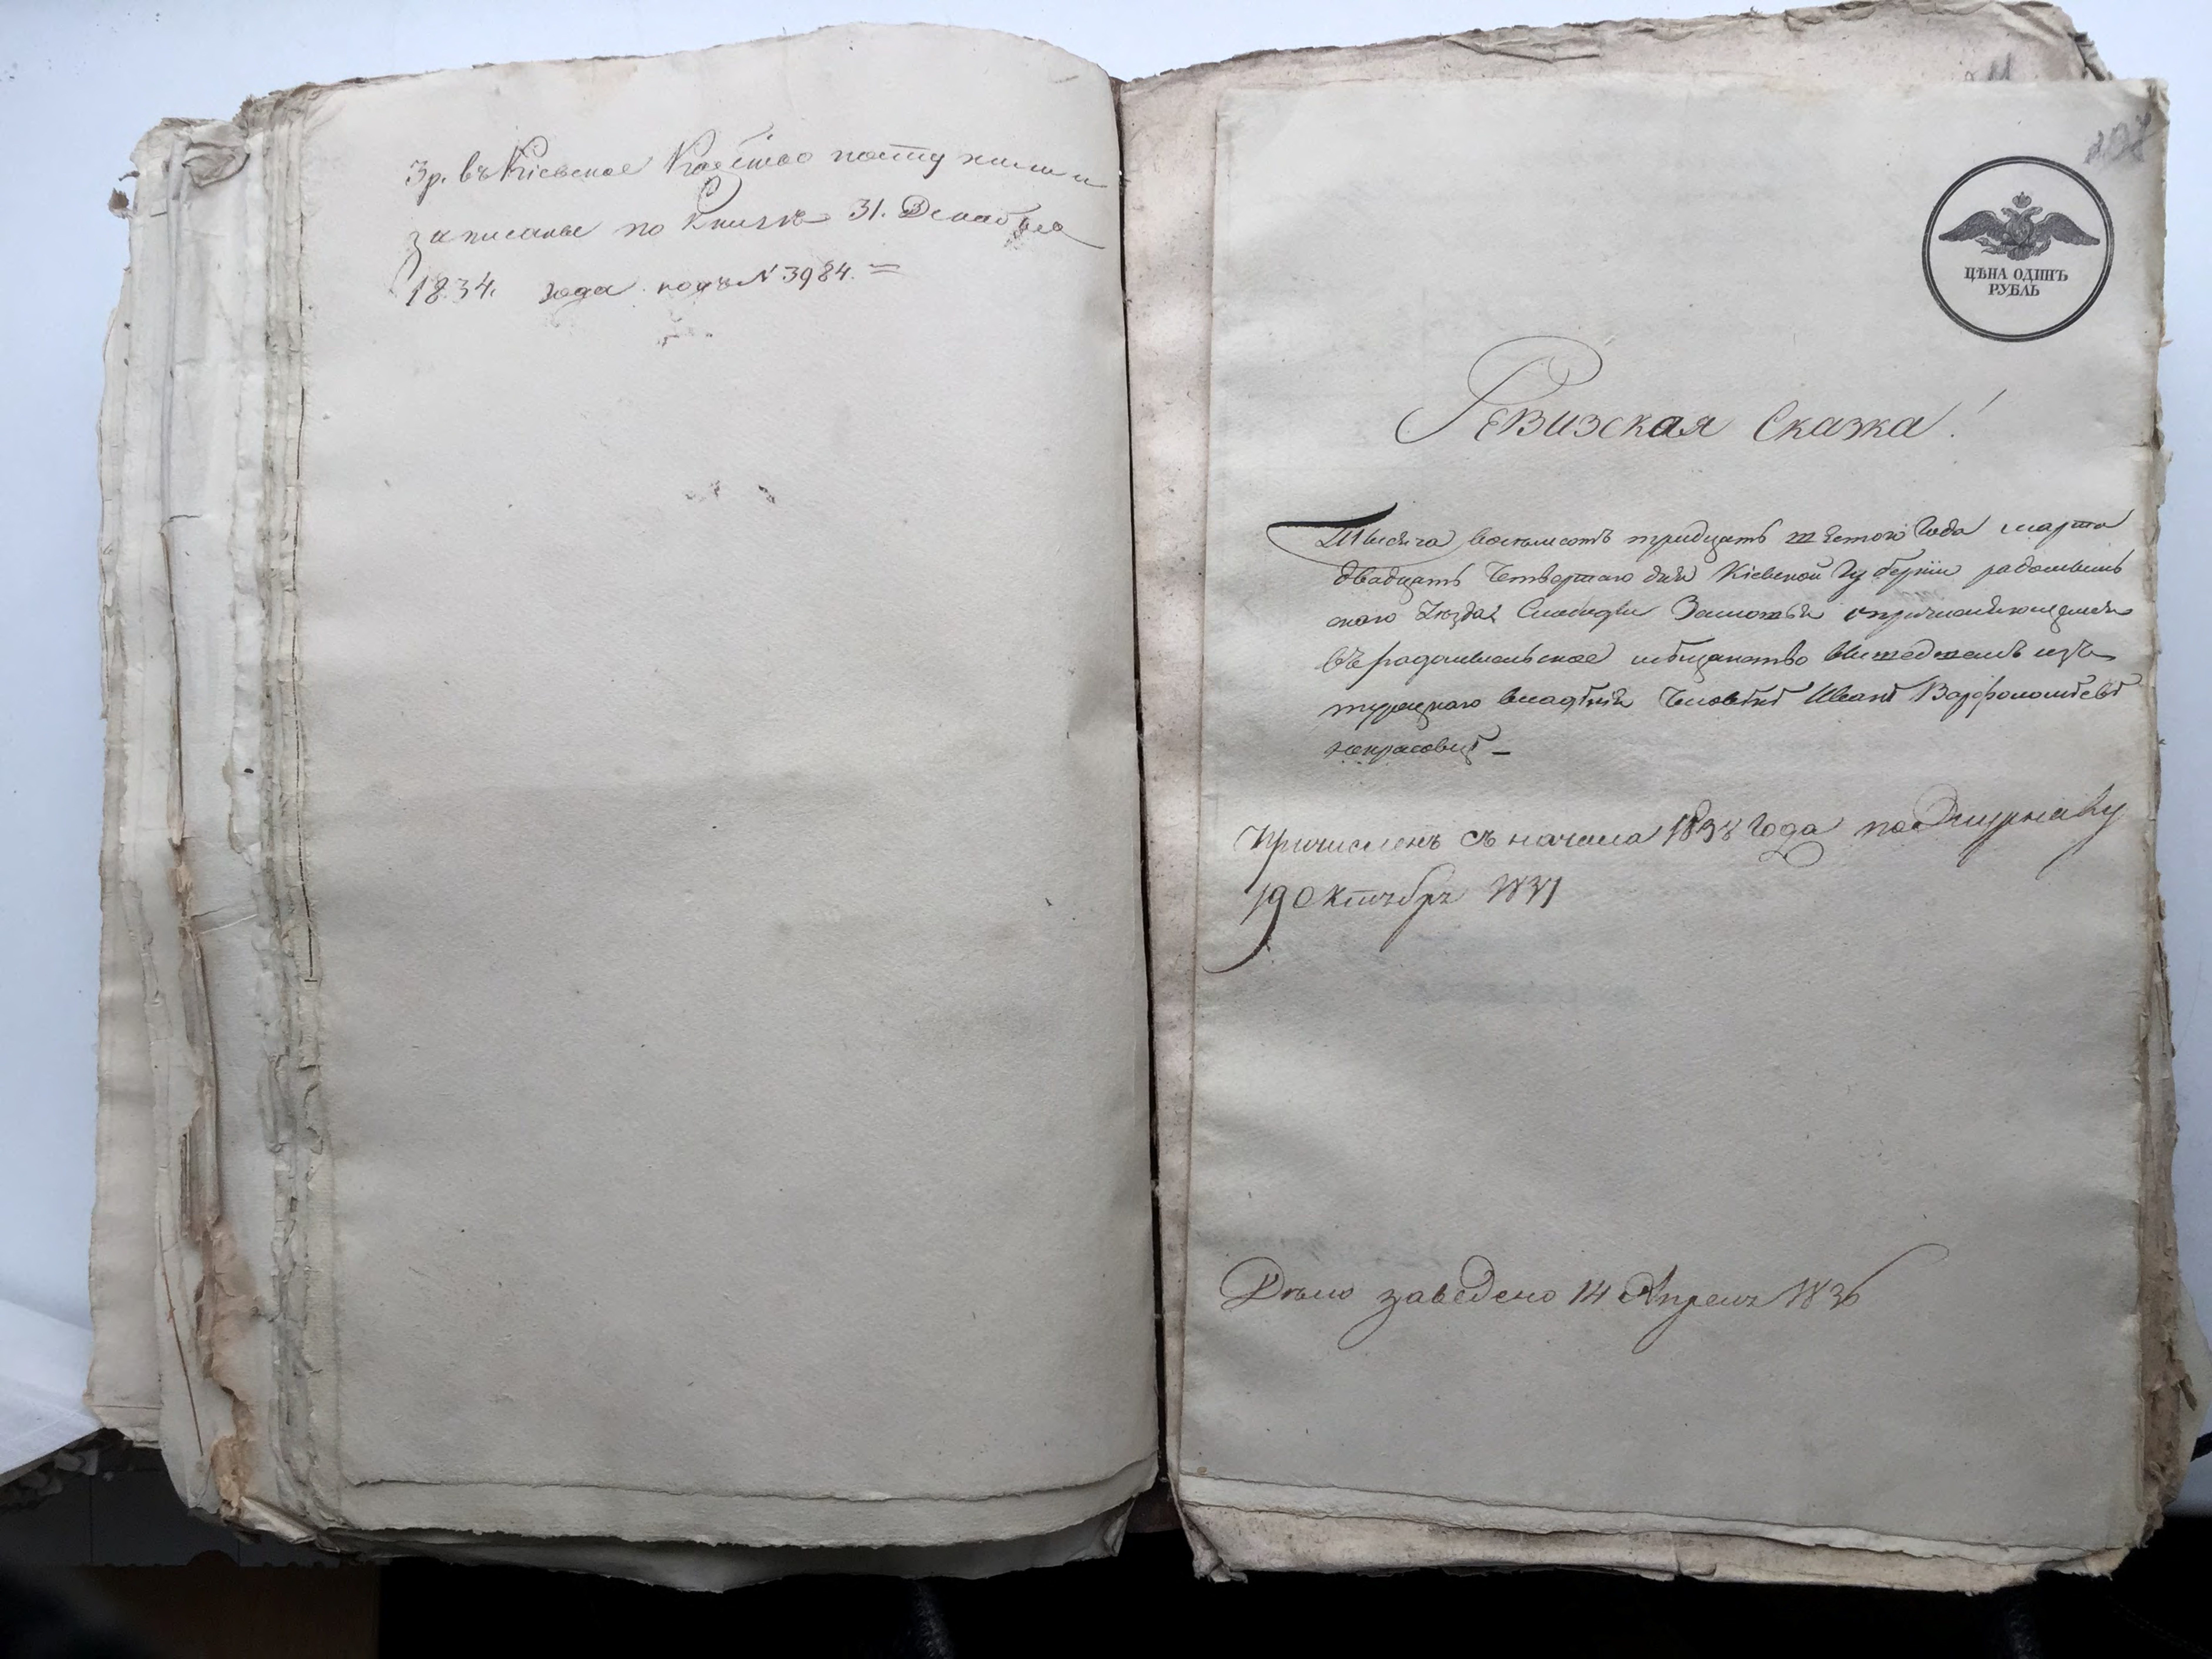 Зр. въ Кіевское Казн-ство поступили и
записаны по книгѣ 31. Декабря
1834. года подъ N 3984. =
ЦѢНА ОДИНЪ
РУБЛЬ
Ревизская Сказка!
Тысяча восемьсотъ тридцать шестого Года марта
двадцать Четвертаго дня Кіевской Губерніи радомысль
скаго Уѣзда Слободы Замостья о причисляющемся
въ радомысльское мѣщанство вышедшемъ изъ
турецкаго владѣнія Человѣкѣ Иванѣ Варфоломѣевѣ
некрасовцѣ –
Причисленъ съ начала 1838 Года по Журналу
19 Октября 1837
Дѣло заведено 14 Апреля 1836